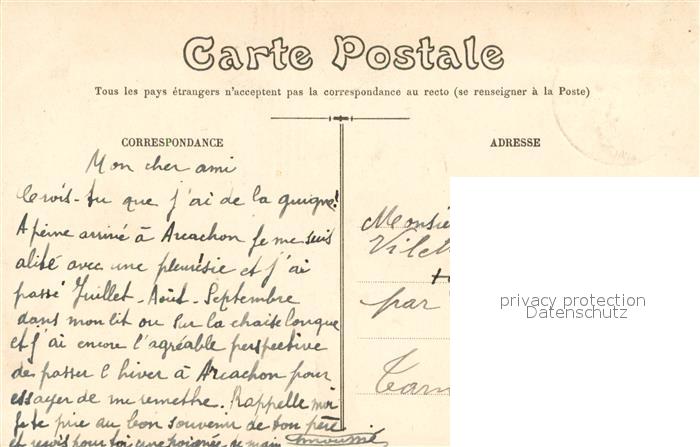 Carte Postale
Tous les pays étrangers n'acceptent pas la correspondance au recto (se renseigner à la Poste)
CORRESPONDANCE
Mon cher ami
Crois-tu que j'ai de la guigne!
A peine arrivé à Arcachon je me suis
alité avec une pleurésie et j'ai
passé Juillet - Août - Septembre
dans mon lit ou sur la chaise longue
et j'ai encore l'agréable perspective
de passer l'hiver à Arcachon pour
essayer de me remettre. Rappelle moi
je te prie au bon souvenir de ton père
et reçois pour toi une poignée de main
ADRESSE
Monsie
par
Tarn
privacy protection
Datenschutz